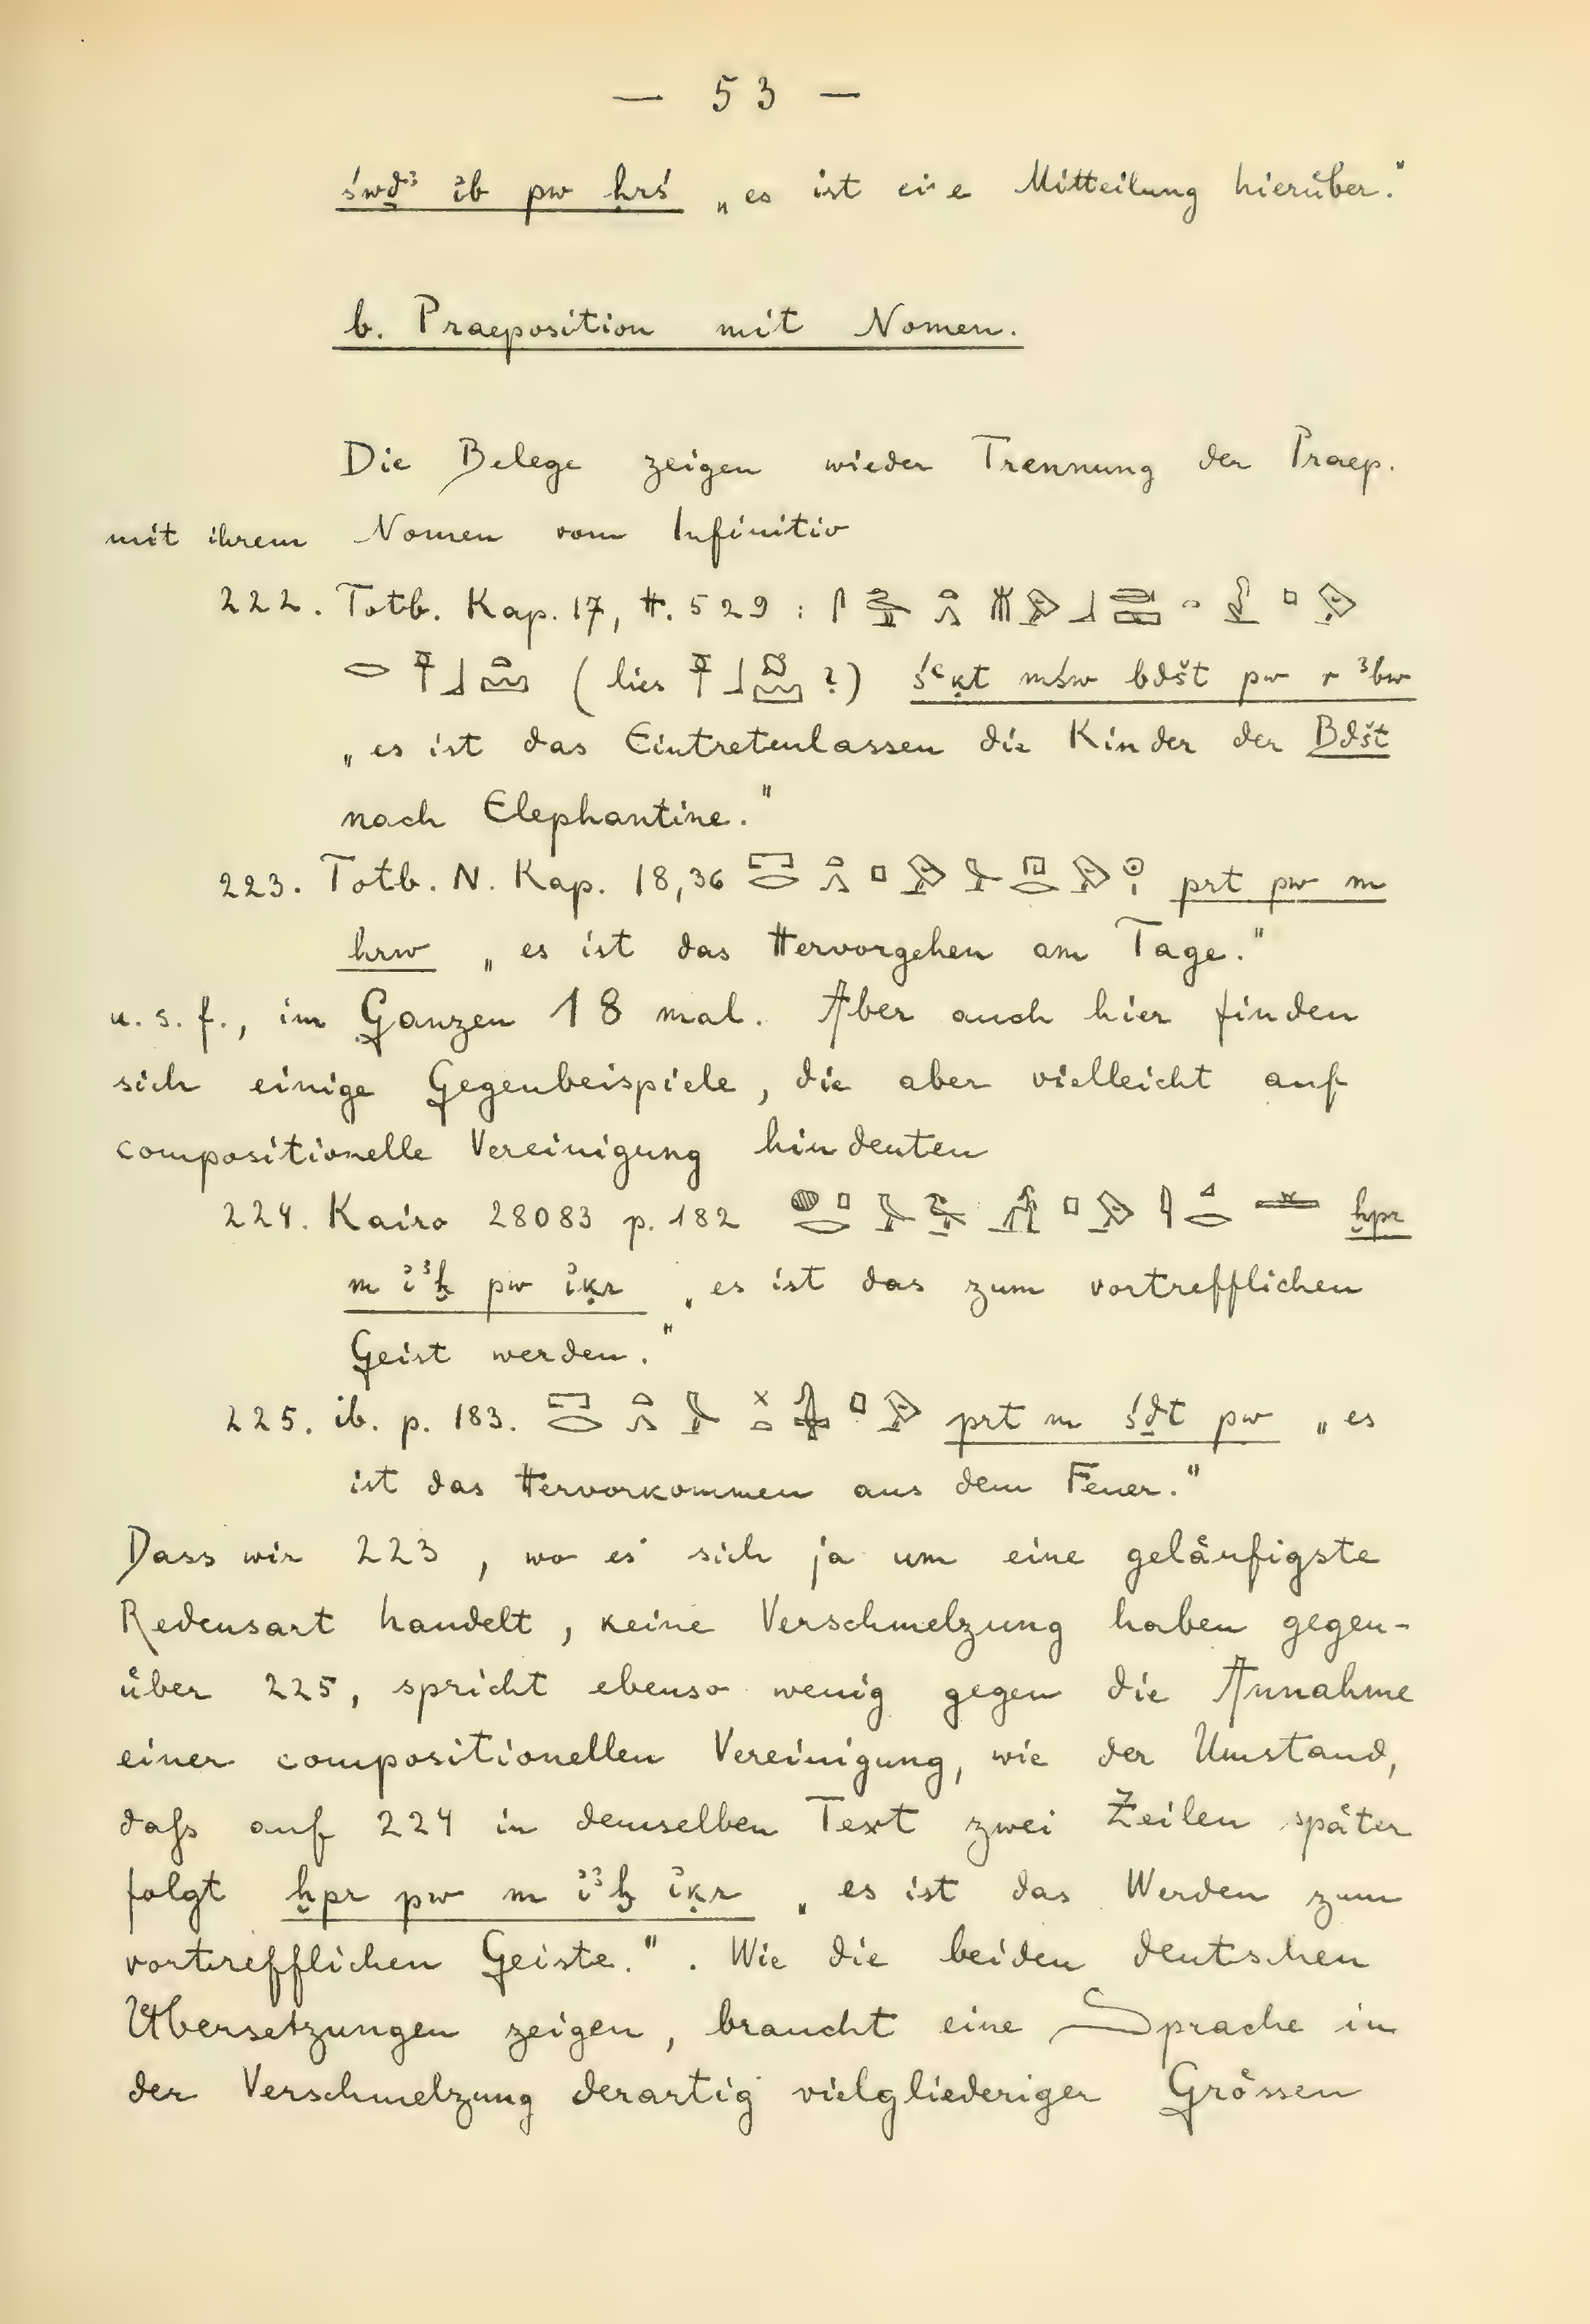 — 53 —
św𓏏ḏꜣ ἰb pw ḥrś „es ist eine Mitteilung hierüber."
b. Praeposition mit Nomen.
Die Belege zeigen wieder Trennung der Praep.
mit ihrem Nomen vom Infinitiv
222. Totb. Kap. 17, H. 529 :
( lies ?) śꜥḳt mśw bdšt pw r ꜣbw
„es ist das Eintretenlassen die Kinder der Bdšt
nach Elephantine."
223. Totb. N. Kap. 18,36 prt pw m
hrw „es ist das Hervorgehen am Tage."
u. s. f., im Ganzen 18 mal. Aber auch hier finden
sich einige Gegenbeispiele, die aber vielleicht auf
compositionelle Vereinigung hindeuten
224. Kairo 28083 p. 182 ḫpr
m ꞽꜣḫ pw ꞽḳr „es ist das zum vortrefflichen
Geist werden."
225. ib. p. 183. prt m śḏt pw „es
ist das Hervorkommen aus dem Feuer."
Dass wir 223, wo es sich ja um eine geläufigste
Redensart handelt, keine Verschmelzung haben gegen-
über 225, spricht ebenso wenig gegen die Annahme
einer compositionellen Vereinigung, wie der Umstand,
daſs auf 224 in demselben Text zwei Zeilen später
folgt ḫpr pw m ꞽꜣḫ ꞽḳr „es ist das Werden zum
vortrefflichen Geiste.". Wie die beiden deutschen
Übersetzungen zeigen, braucht eine Sprache in
der Verschmelzung derartig vielgliederiger Grössen